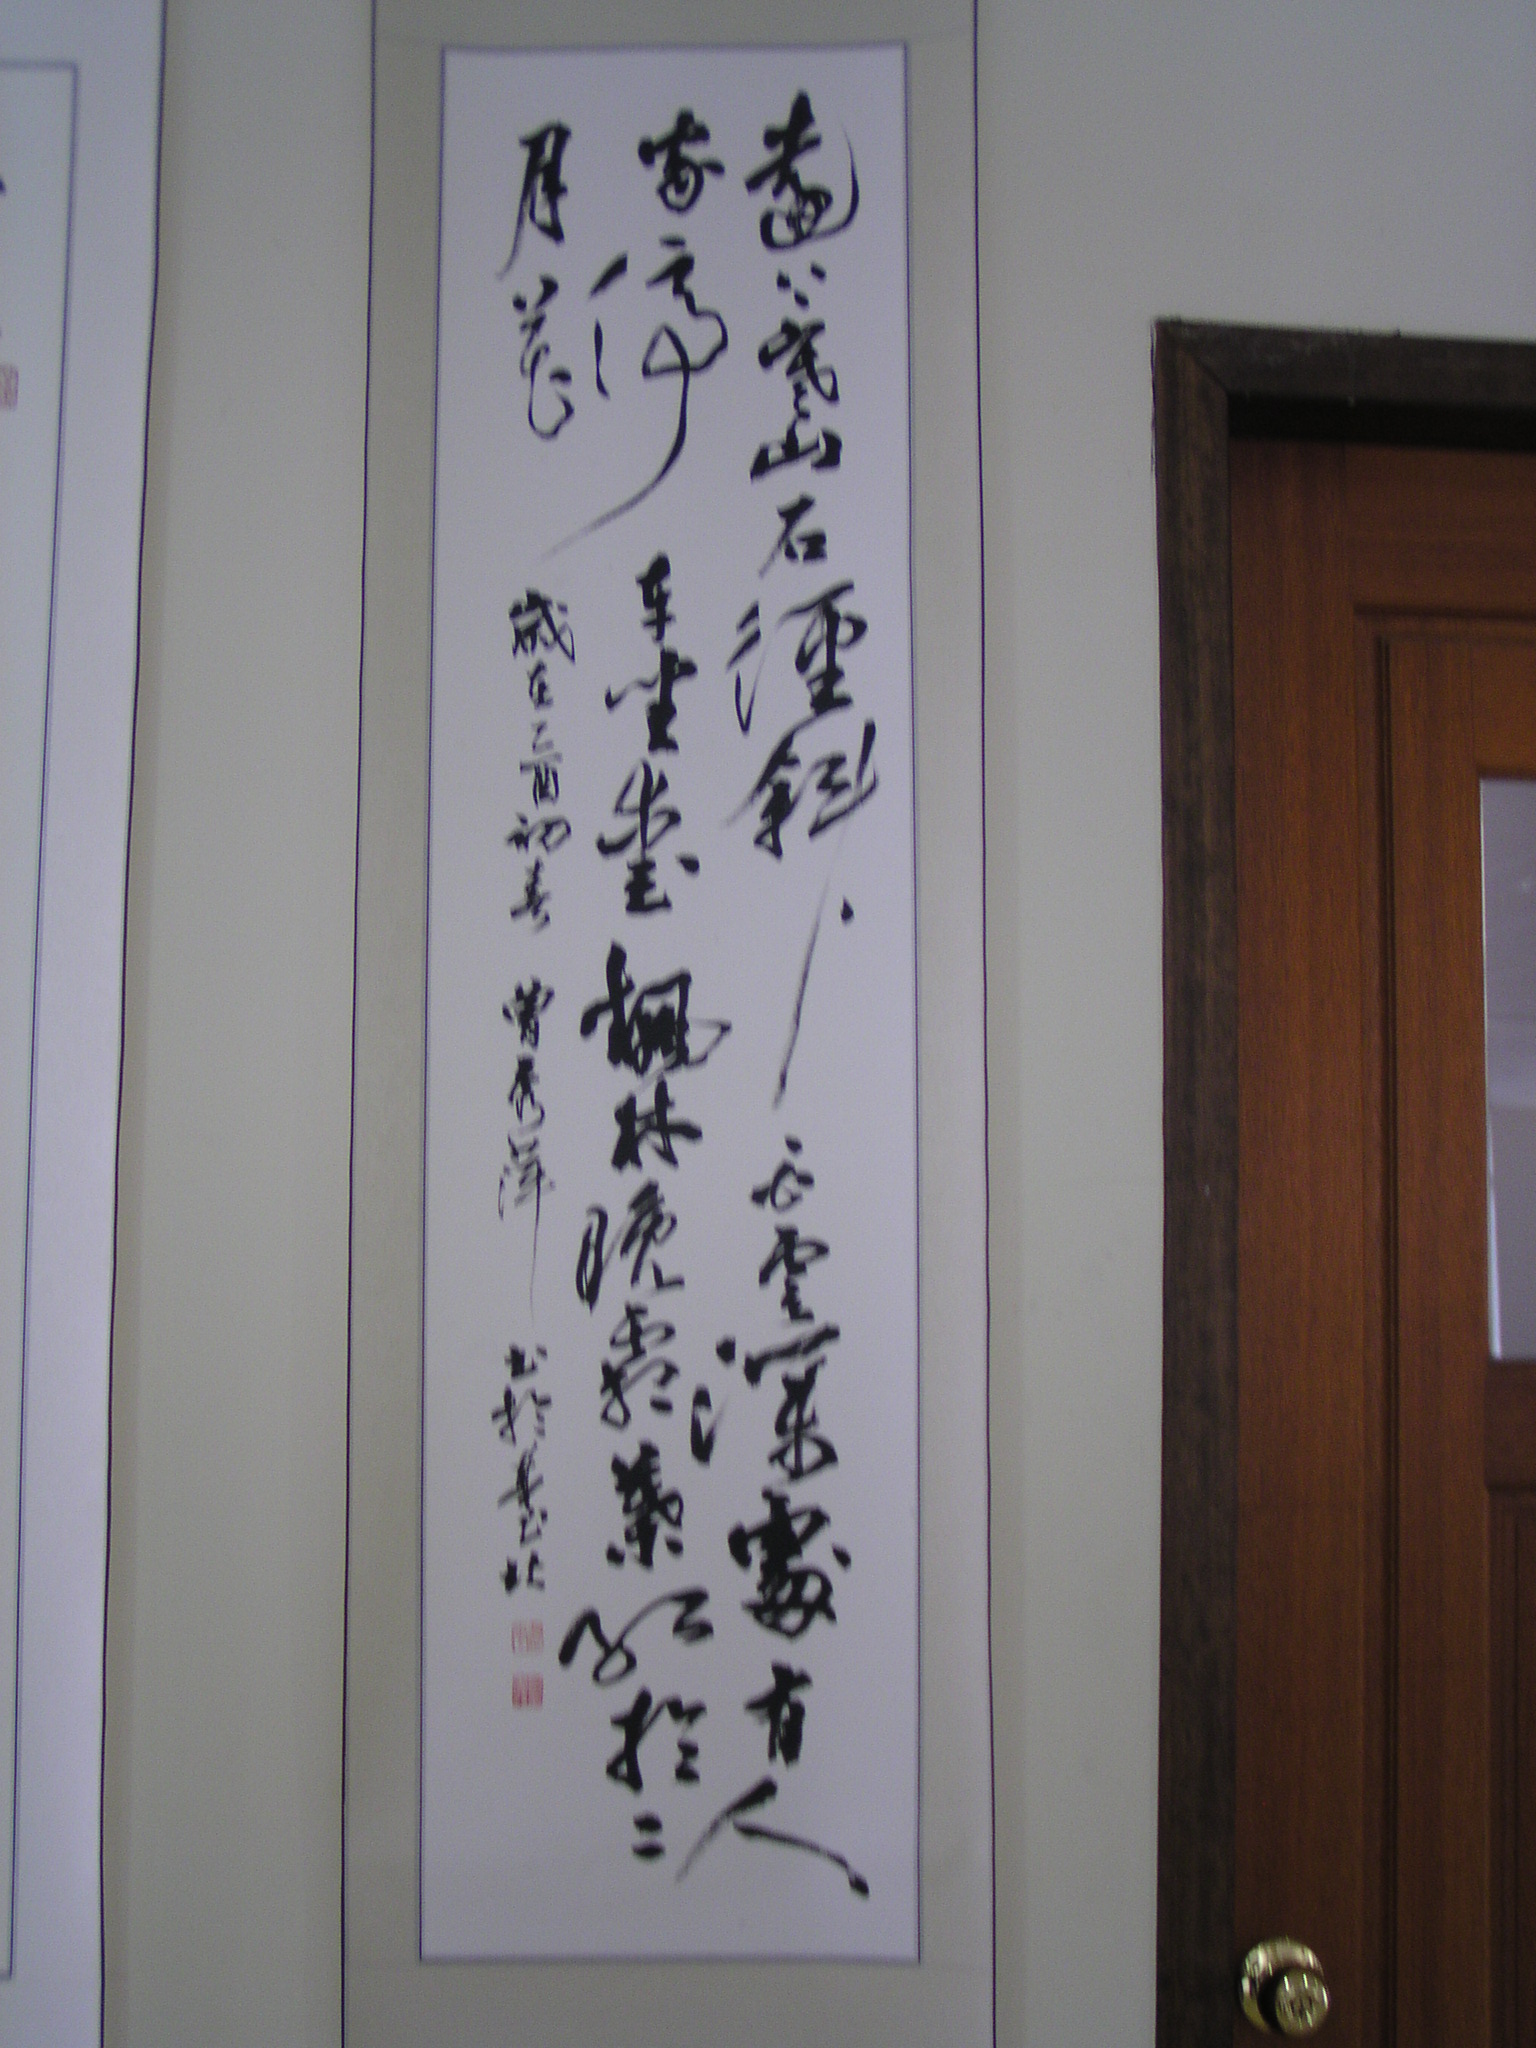 遠上寒山石徑斜白雲深處有人
家停車坐愛楓林晚霜葉紅於二
月花 歲在乙酉初春 曾秀萍 書於臺北